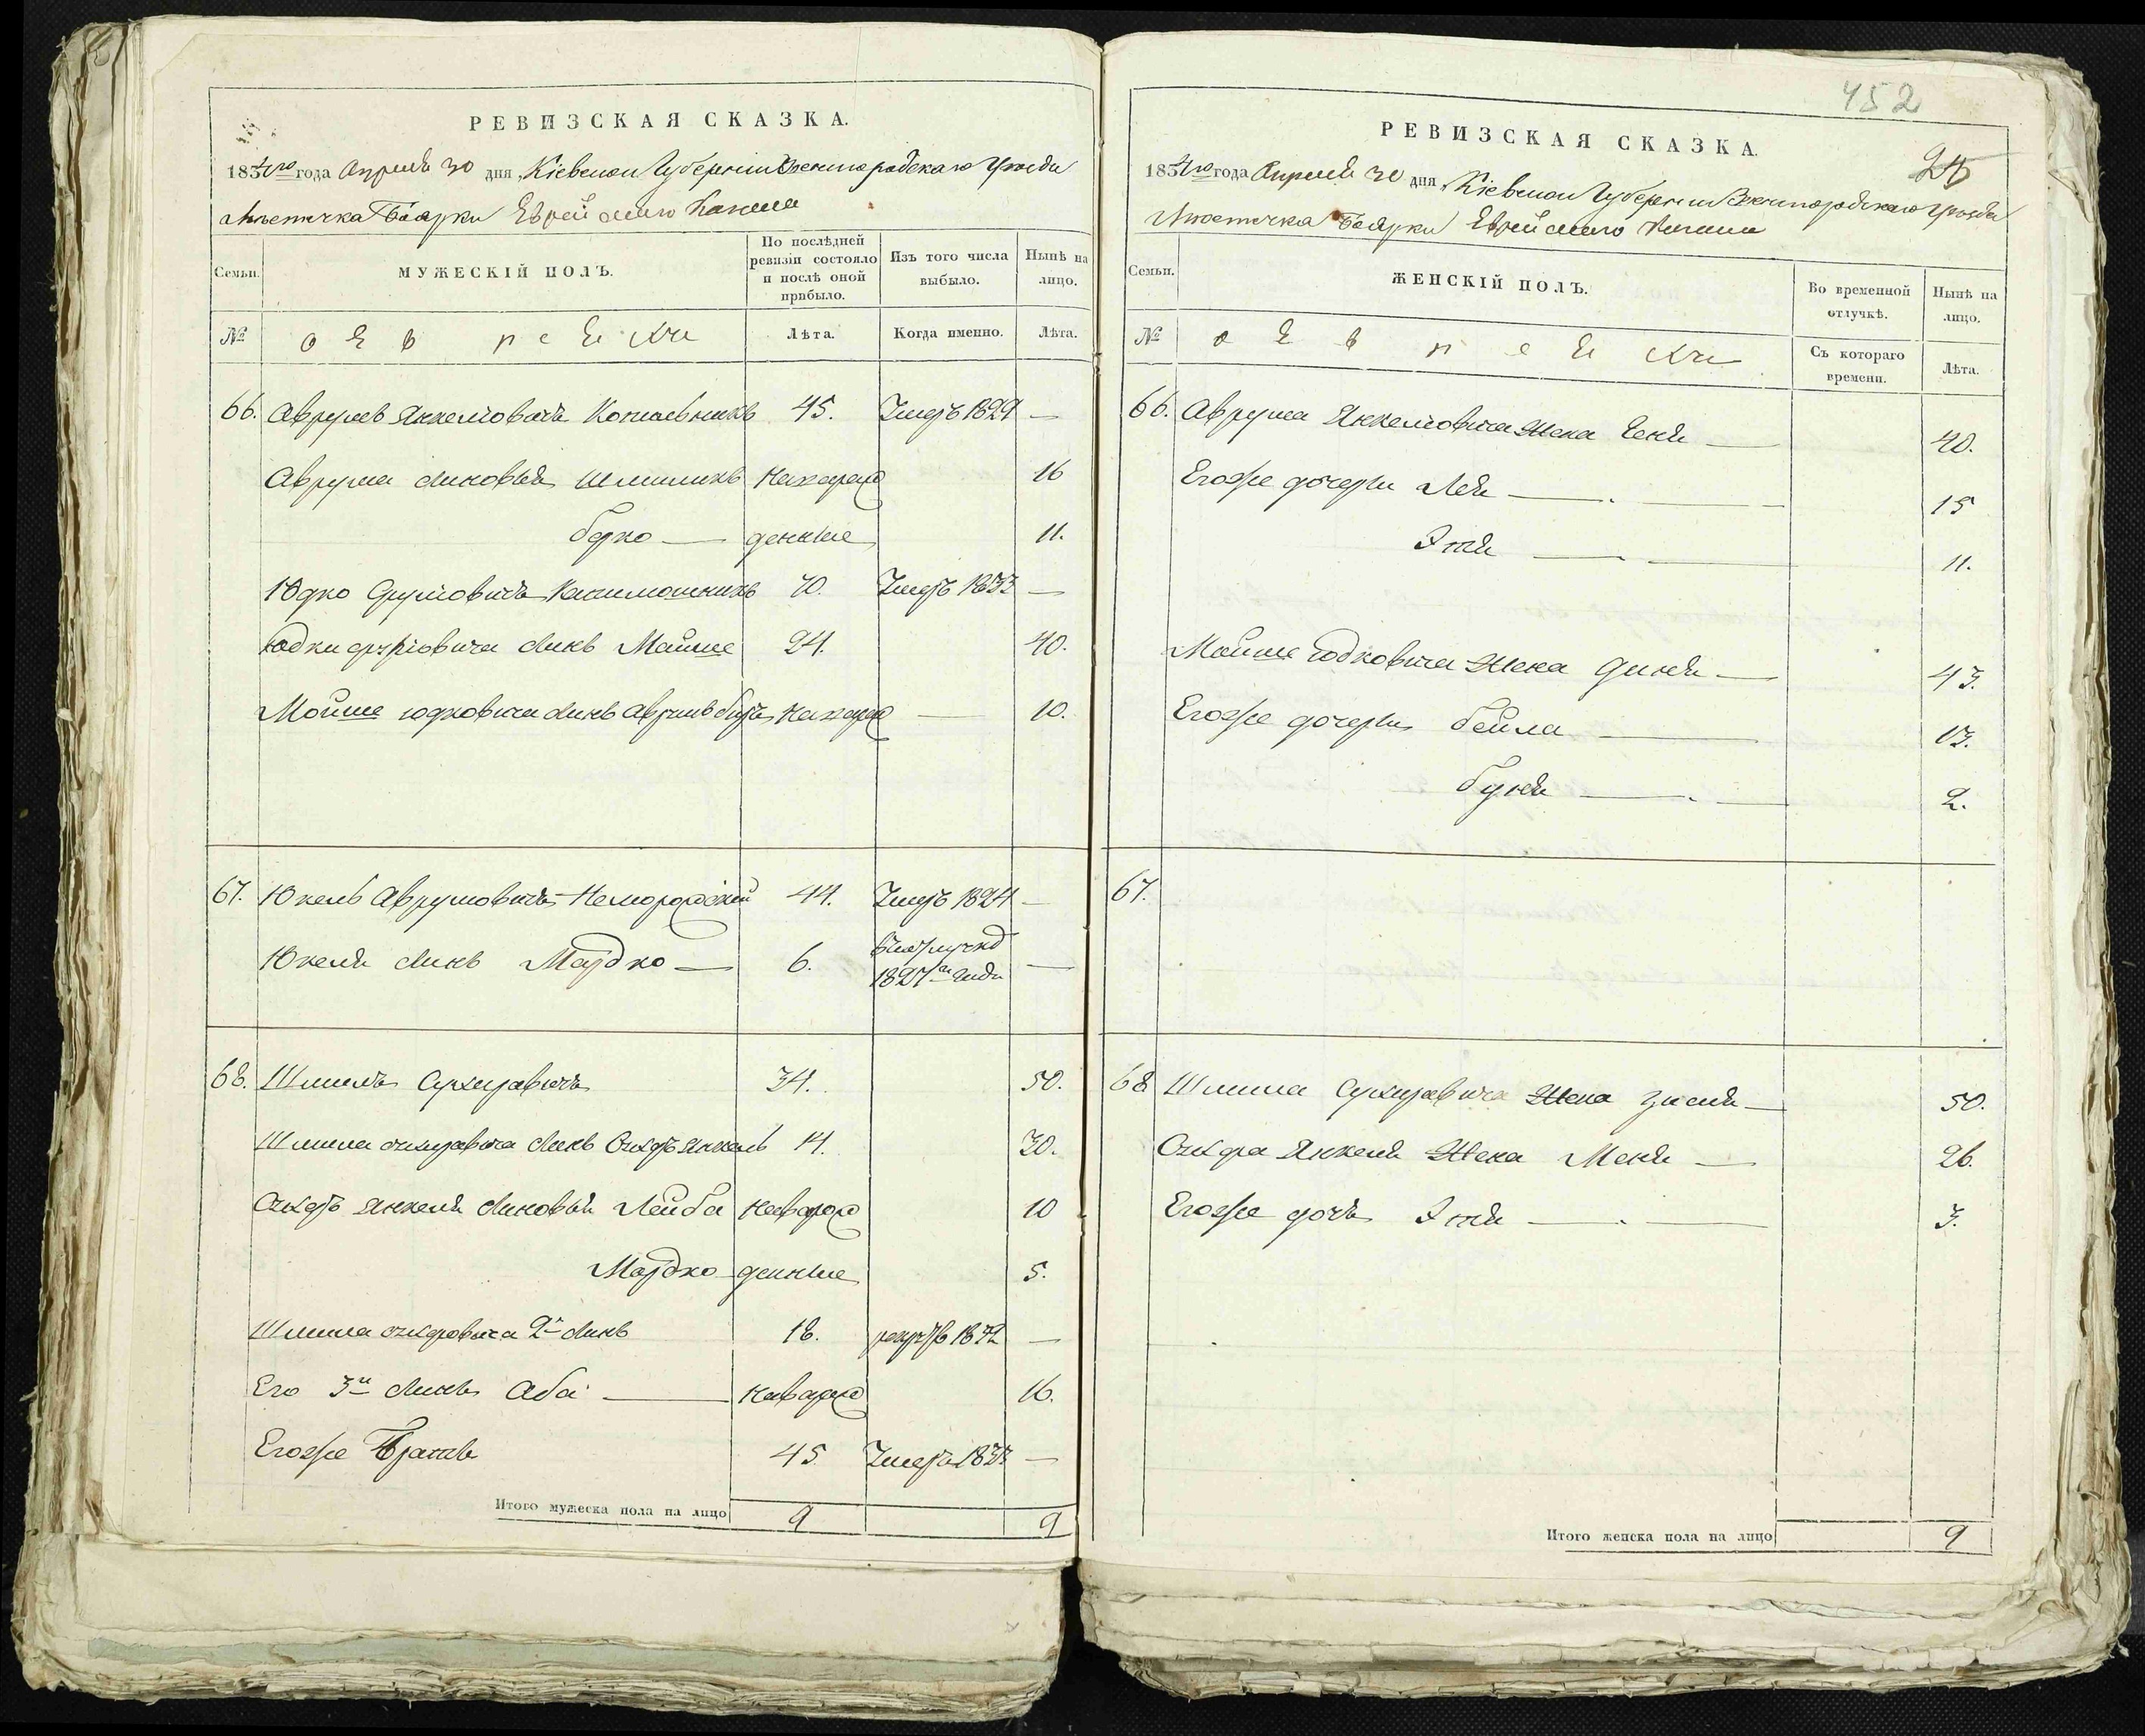 РЕВИЗСКАЯ СКАЗКА.
1834го года Апреля 30 дня, Кіевской Губерніи Звенигородскаго уезда
Местечка Боярки Еврейскаго Кагала
Семьи.
МУЖЕСКІЙ ПОЛЪ.
По послѣдней ревизіи состояло и послѣ оной прибыло.
Изъ того числа выбыло.
Нынѣ на лицо.
№
Евреи
Лѣта.
Когда именно.
Лѣта.
66. Аврумъ Янкелювичъ 45. Умеръ 1829 —
Аврума сыновья Шмиликъ Новорож 16
Берко — денные 11.
Юдко Сруліовичъ 70. Умеръ 1833 —
Юдки Сруліовича сынъ Мойше 24. 40.
Мойше Юдковича сынъ Аврумъ Новорож — 10.
67. Юкель Аврумовичъ Немородскій 44. Умеръ 1824 —
Юкеля сынъ Мордко — 6. 1827 года —
68. Шмиль Сухеравичъ 34. 50.
Шмиля сынъ Янкель 14. 30.
Янкеля сыновья Лейба новорож 10
Мордко денные 5.
Шмиля 2й сынъ 18. 18 —
Его 3й сынъ Аба — новорож 16.
Егоже Братъ 45 Умеръ —
Итого мужеска пола на лицо 9 9
452
РЕВИЗСКАЯ СКАЗКА.
1834го года Апреля 30 дня, Кіевской Губерніи Звенигородскаго уезда
Местечка Боярки Еврейскаго Кагала
Семьи.
ЖЕНСКІЙ ПОЛЪ.
Во временной отлучкѣ.
Нынѣ на лицо.
№
Евреи
Съ котораго времени.
Лѣта.
66. Аврума Янкелювича Жена — 40.
Егоже дочери Лея — 15
Этя — 11.
Мойше Юдковича Жена Диня — 43.
Егоже дочери Бейла — 13.
Буня — 2.
67.
68 Шмиля Сухеравича Жена Зися — 50.
Янкеля Жена Меня — 26.
Егоже дочь Этя — 3.
Итого женска пола на лицо 9